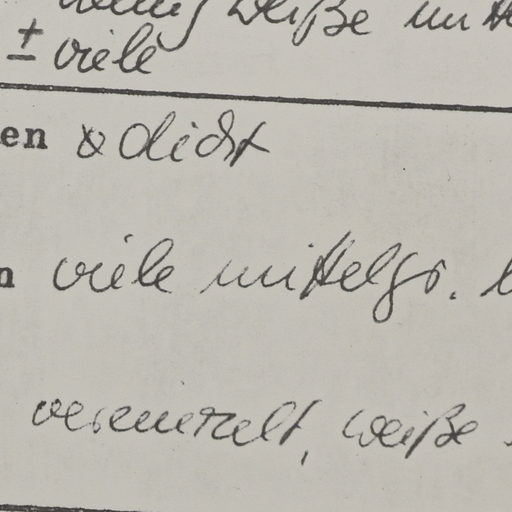 weiße mitt
± viele
en dicht
n viele mittelgr.
vereinzelt, weiße